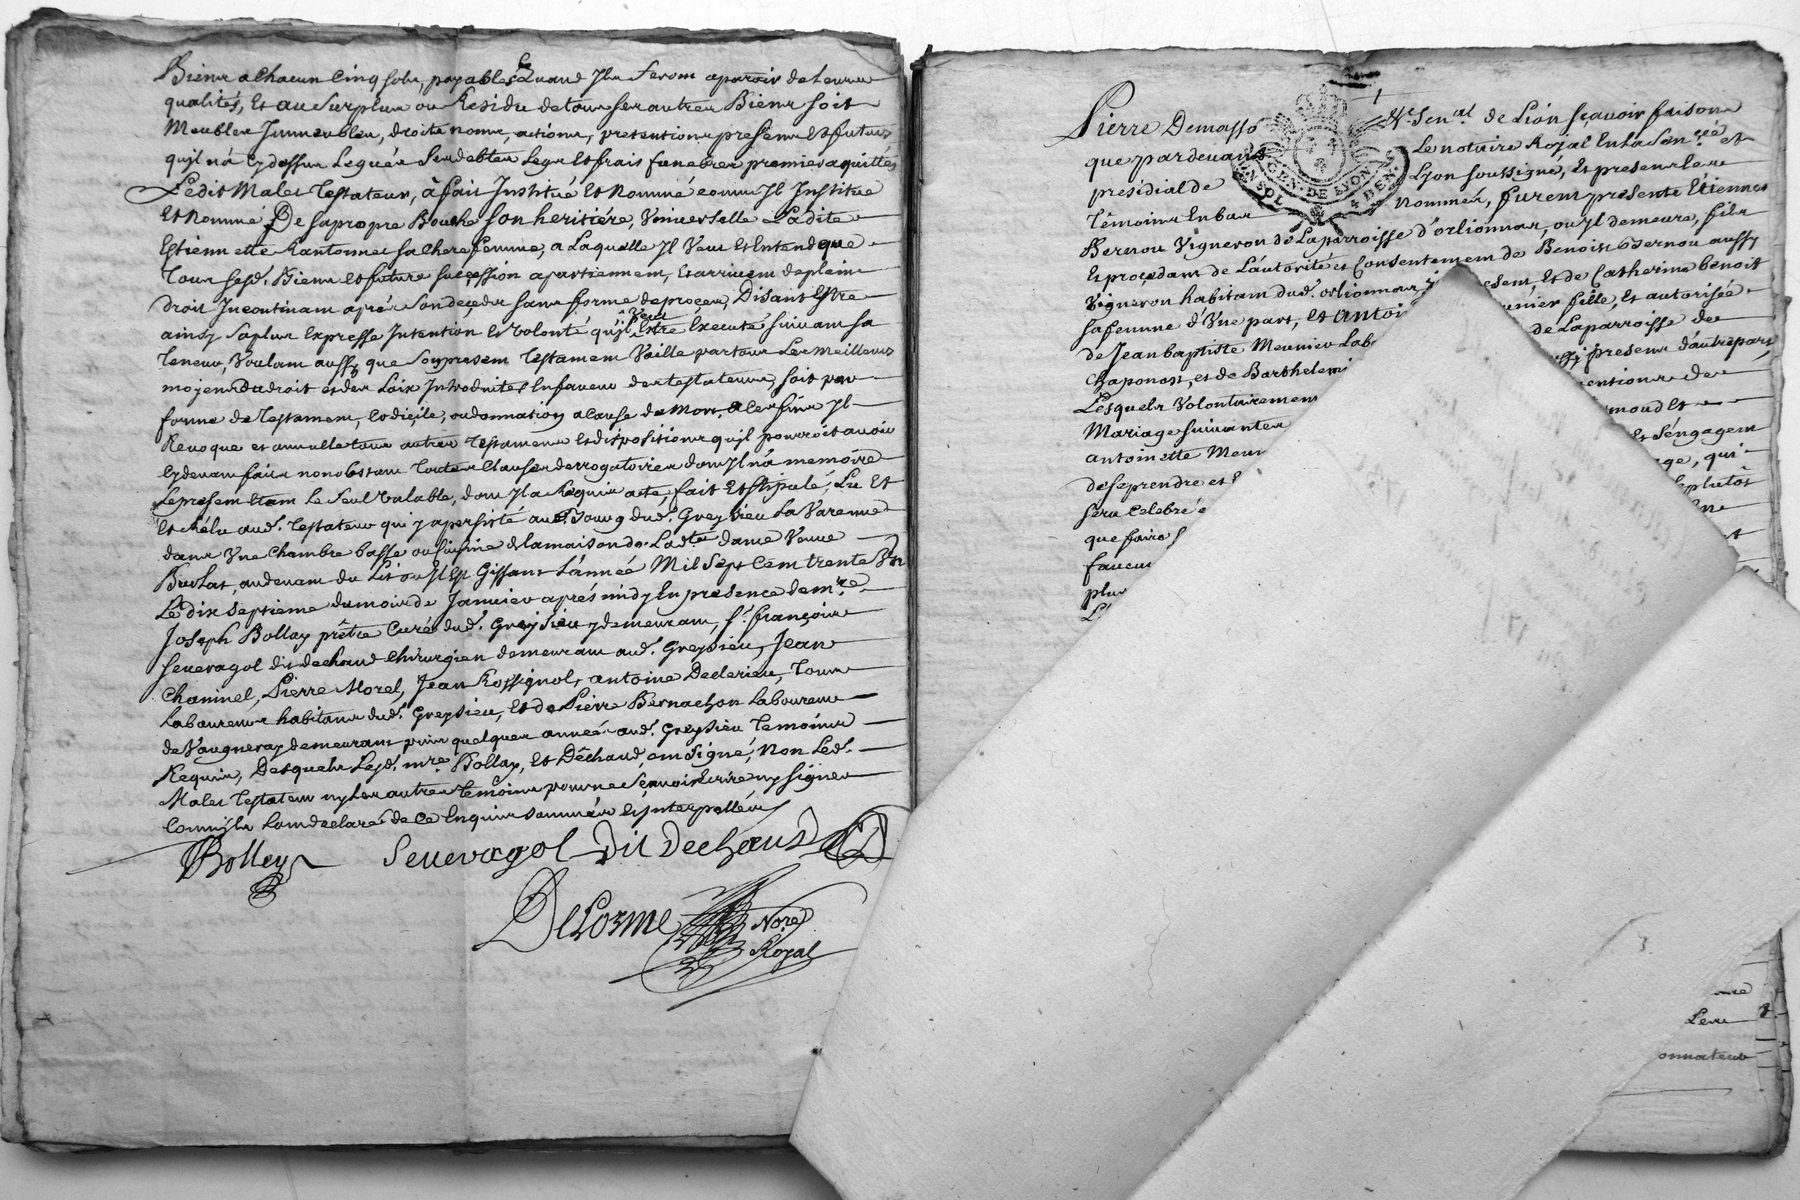 Biens a Chacun Cinq sols, payables Quand Ils seront aparoir de leurs
qualités, Et au surplus ou Residu de tous ses autres Biens soit
Meubles Immeubles, droits noms, actions, pretentions presens Et futurs
qu'il n'a cy dessus Legués ses debtes Legs et frais funebres premier aquittés
Ledit Males Testateur, à fait Institué Et Nommé comme Il Institue
Et Nomme De sa propre Bouche son heritiere, Vniverselle Ladite
Estiennette sa Chere femme, a Laquelle Il Veut Et Entend que
Tous sesd. Biens Et future succession apartiennent, Et arrivent de plein
droit Incontinant aprés son decedz sans forme de procez, Disant Estre
ainsy sa plus Expresse Intention Et Volonté qu'il Veut Estre Executé suivant sa
Teneur, Voulant aussy que son present Testament Vaille par tous Les meilleurs
moyens du droit et des Loix Introduites En faveur des testateurs, soit par
forme de Testament, Codicile, ou donnation a Cause de Mort, a Ces fins Il
Revoque et annulle tous autres Testamens Et dispositions qu'il pourroit avoir
Cy devant faits nonobstant Toutes Clauses derrogatoires dont Il n'a memoire
Le present Etant Le seul Valable, dont Il a Requis acte, fait Et stipulé, Lu Et
Et rélu aud. Testateur qui y a persisté au Bourg dud. Greysieu La Varenne
dans Vne Chambre basse ou Cuisine de la maison de Ladte dame Veuve
audevant du Lit ou Il Est Gissant L'année Mil Sept Cent trente Vn
Le dix septieme du mois de Janvier aprés midy En presence de mre
Joseph Bollay prêtre Curé dud. Greysieu y demeurant, sr. françois
Senevagol dit dechaud Chirurgien demeurant aud. Greysieu, Jean
Chaninel, Pierre Morel, Jean Rossignol, antoine Declerieu, Tous
Laboureurs habitans dud. Greysieu, Et de Pierre Bernachon Laboureur
de Vaugneray demeurant puis quelques années aud. Greysieu Temoins
Requis, Desquels Lesd. mre Bollay, Et Dêchaud, ont signé, Non Led.
Males Testateur ny Les autres Temoins pour ne Sçavoir Ecrire ny signer
Comm'ils L'ont declaré de Ce Enquis sommés & Interpellés
Bolley Senevagol Dit Dechaud
DeLorme Nore
Royal
1
Pierre Demasso Senal de Lion sçavoir faisons
GEN·DE LYON 4 DEN
que pardevant Le notaire Royal En La Senceé et
presidial de Lyon soussigné, Et presens Les
Témoins En bas Nommés, furent presents Etiennes
Bernou Vigneron de La parroisse d'orlionnas, ou Il demeure, fils
Et procedant de L'autorité et Consentement de Benoist Bernou aussy
Vigneron habitant dud. orlionnas present, Et de Catherine Benoit
sa femme d'Vne part, Et antoi unier fille, Et autorisée
de Jean baptiste Meunier Lab de La parroisse de
Chaponost, et de Barthelemi presens d'autre part
Lesquels Volontairement entions de
Mariage suivantes
antoinette Meun Et S'engagent
de se prendre et age, qui
sera Celebré plutôt
que faire
faveur
plus
Leur
onnateur